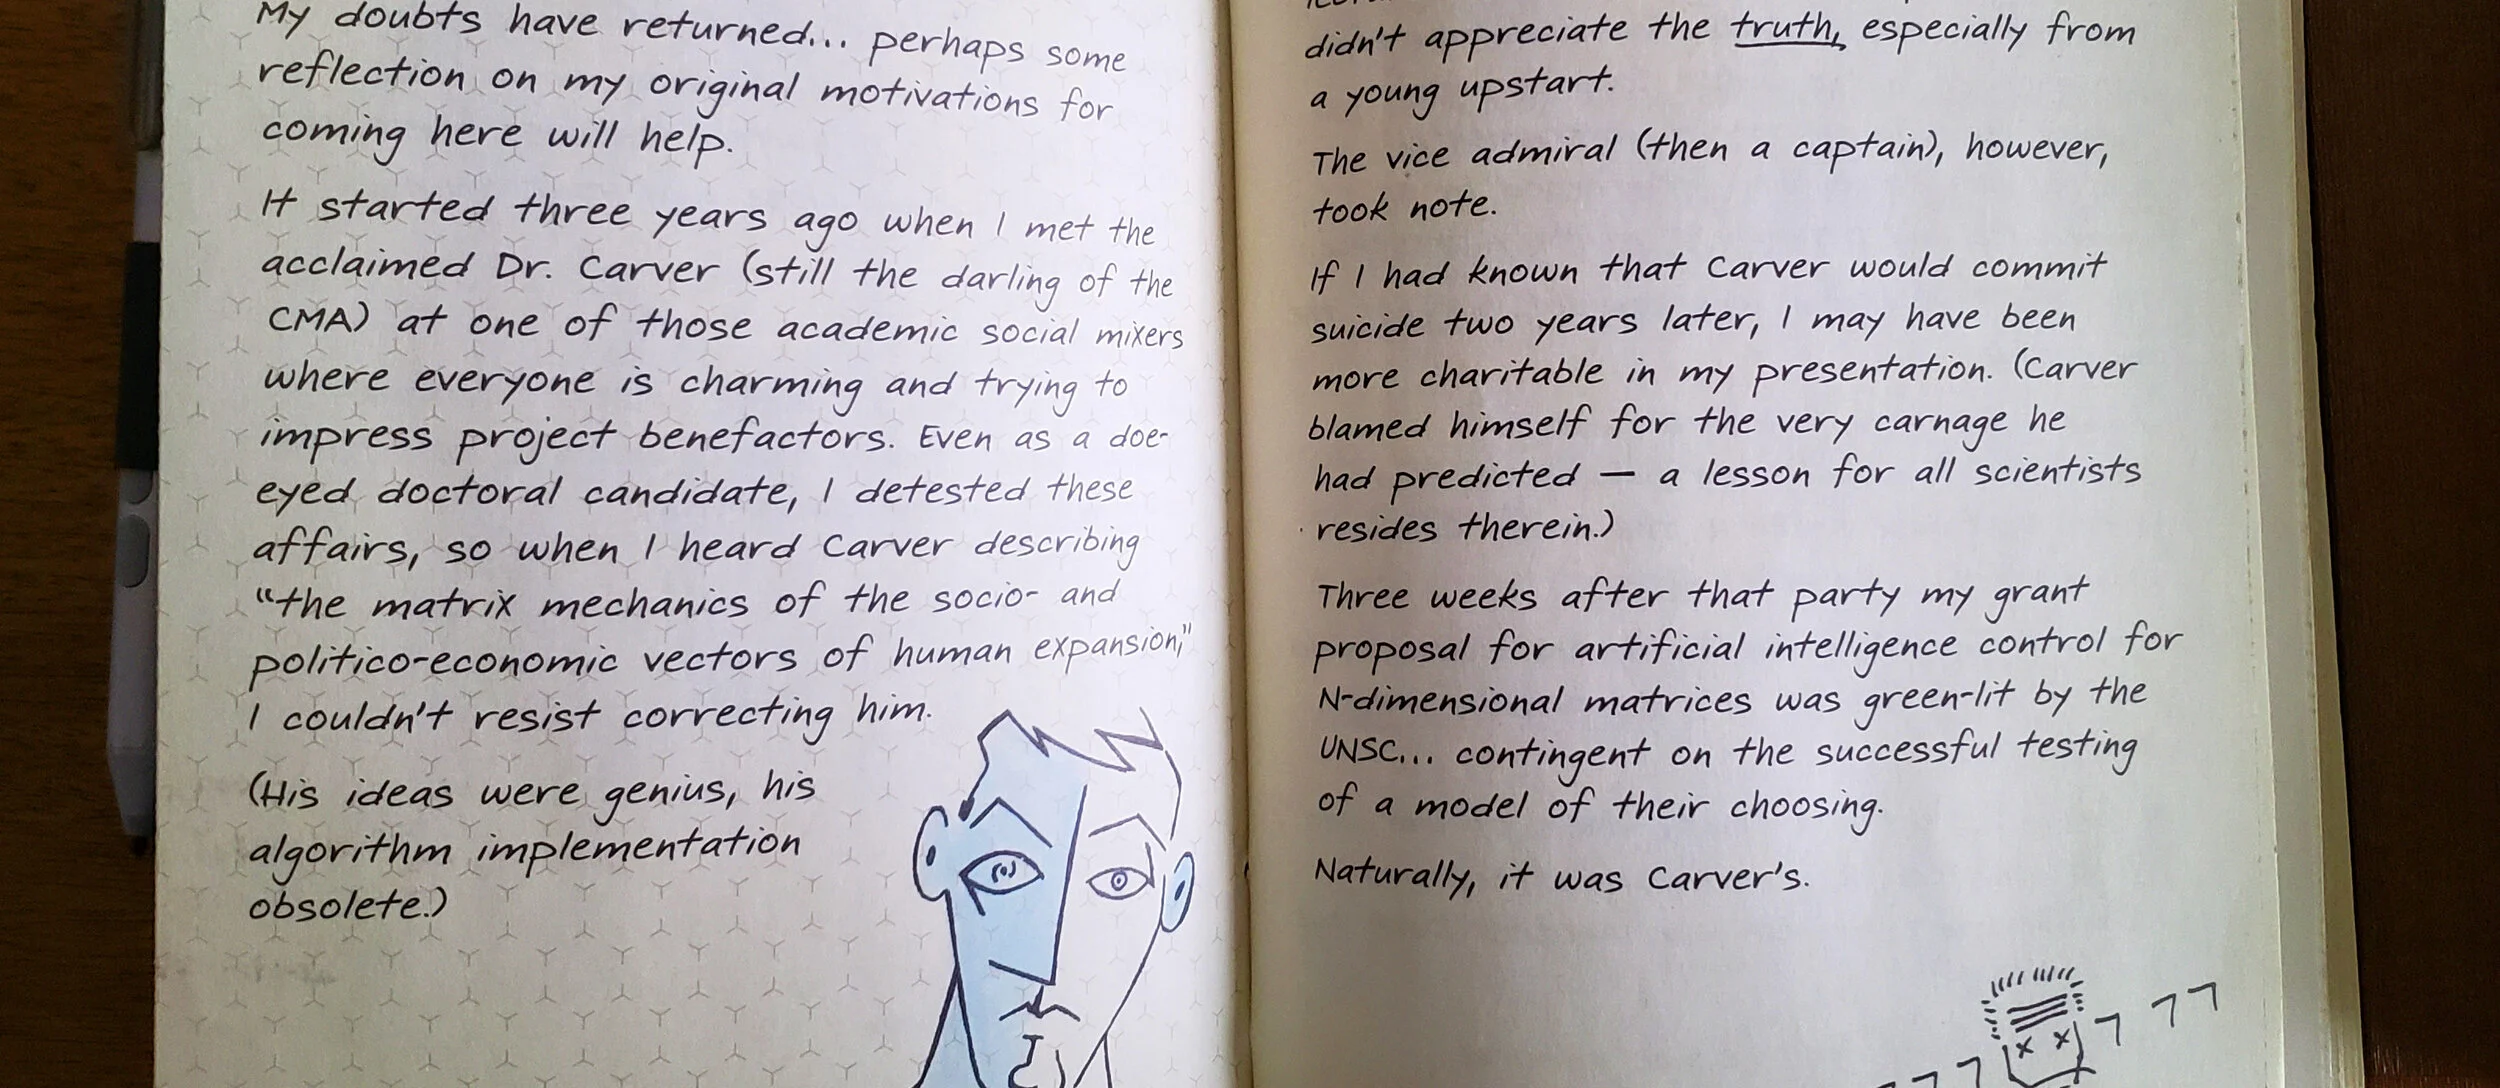 My doubts have returned... perhaps some
reflection on my original motivations for
coming here will help.
It started three years ago when I met the
acclaimed Dr. Carver (still the darling of the
CMA) at one of those academic social mixers
where everyone is charming and trying to
impress project benefactors. Even as a doe-
eyed doctoral candidate, I detested these
affairs, so when I heard Carver describing
"the matrix mechanics of the socio- and
politico-economic vectors of human expansion,"
I couldn't resist correcting him.
(His ideas were genius, his
algorithm implementation
obsolete.)
didn't appreciate the truth, especially from
a young upstart.
The vice admiral (then a captain), however,
took note.
If I had known that Carver would commit
suicide two years later, I may have been
more charitable in my presentation. (Carver
blamed himself for the very carnage he
had predicted — a lesson for all scientists
resides therein.)
Three weeks after that party my grant
proposal for artificial intelligence control for
N-dimensional matrices was green-lit by the
UNSC... contingent on the successful testing
of a model of their choosing.
Naturally, it was Carver's.